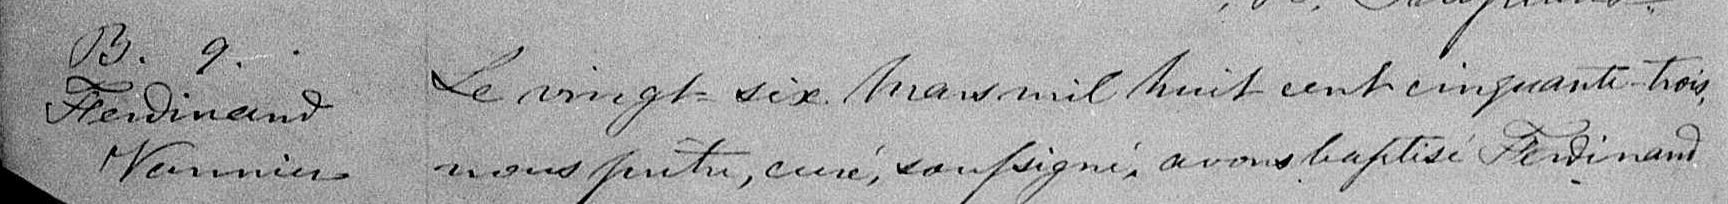 B. 9.
Ferdinand
Vannier
Le vingt-six Mars mil huit cent cinquante-trois,
nous prêtre, curé, soussigné, avons baptisé Ferdinand